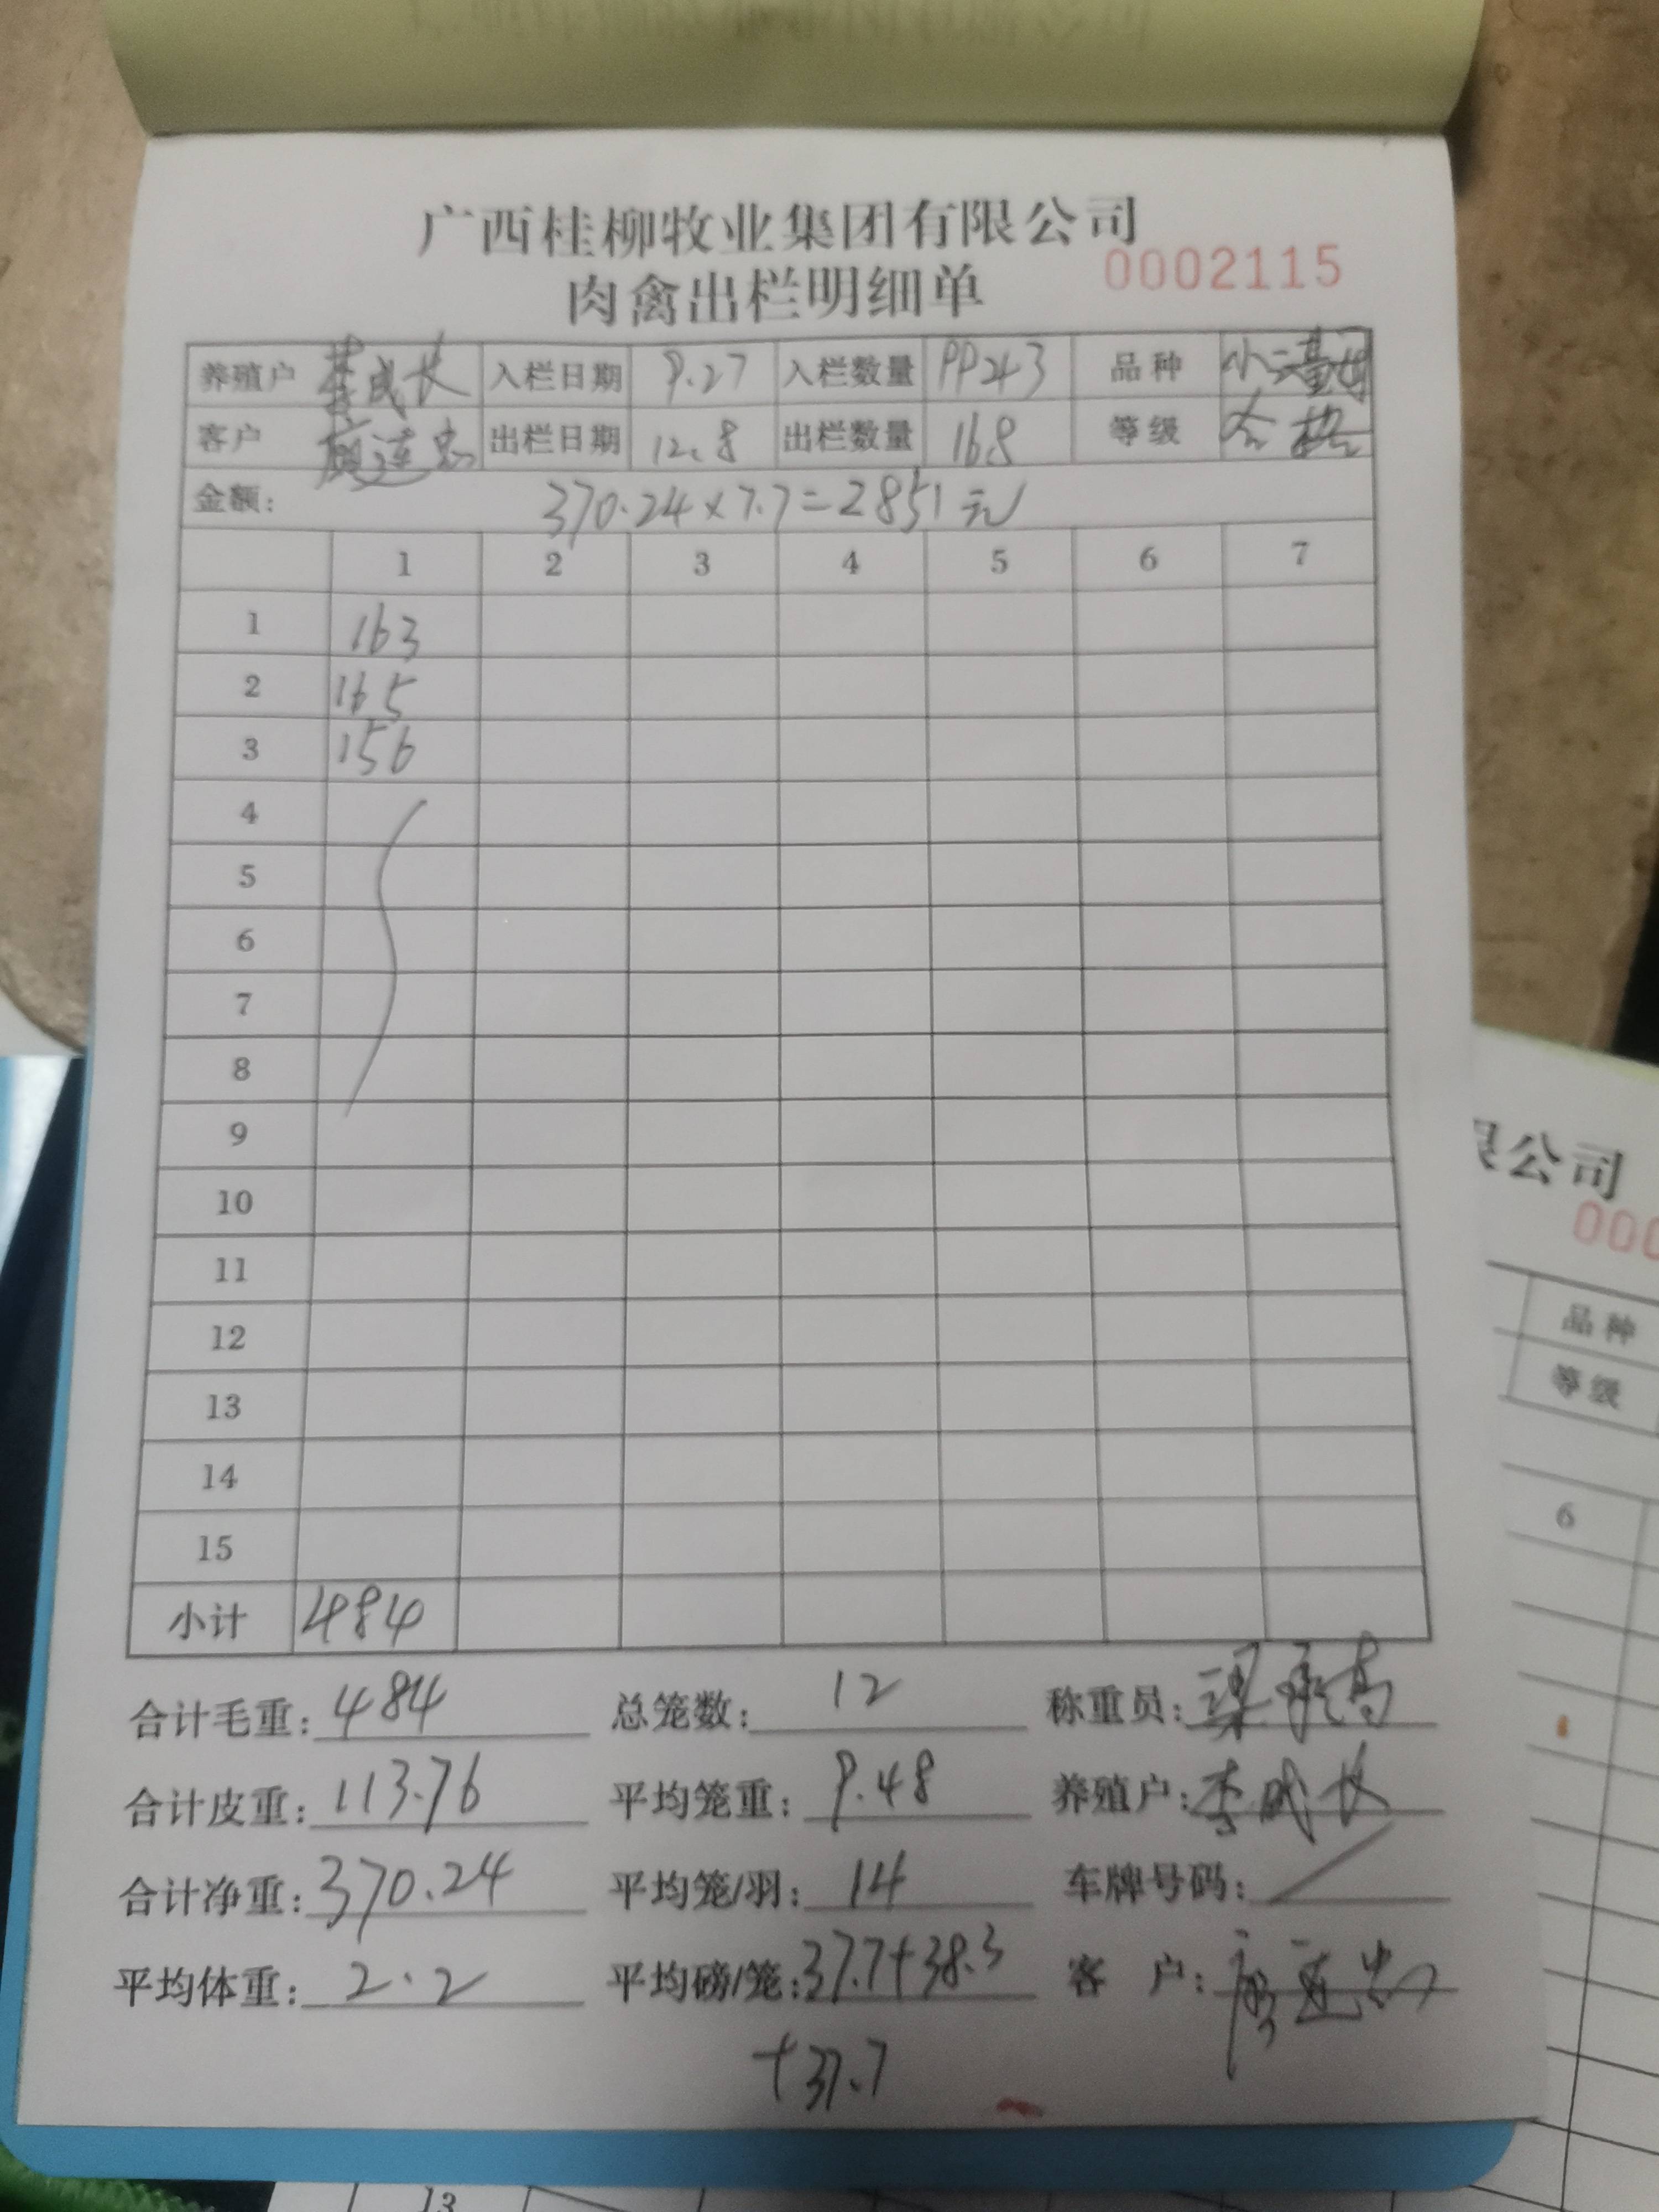 广西桂柳牧业集团有限公司
肉禽出栏明细单 0002115
养殖户 李成长 入栏日期 9.27 入栏数量 9943 品种
客户 出栏日期 12.8 出栏数量 168 等级 合格
金额: 370.24×7.7=2851元
1 2 3 4 5 6 7
1 163
2 165
3 156
4
5
6
7
8
9
10
11
12
13
14
15
小计 484
合计毛重: 484 总笼数: 12 称重员: 梁承高
合计皮重: 113.76 平均笼重: 9.48 养殖户: 李成长
合计净重: 370.24 平均笼/羽: 14 车牌号码: /
平均体重: 2.2 平均磅/笼: 37.7+38.3 客 户:
+37.7
限公司
000
品种
等级
6
13